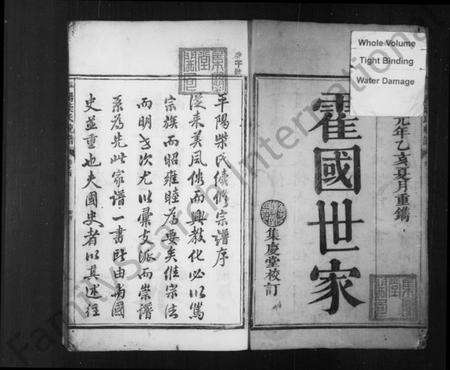 Whole Volume
Tight Binding
Water Damage
元年乙亥夏月重鐫
霍國世家
集慶堂校訂
平陽柴氏儀衡宗譜序
從來美風俗而興教化必以篤
宗族而昭雍睦為要矣惟宗法
而明世次尤以彙支派而崇譜
系為先此家譜一書所由與國
史並重也夫國史者以其述往
FamilySearch International